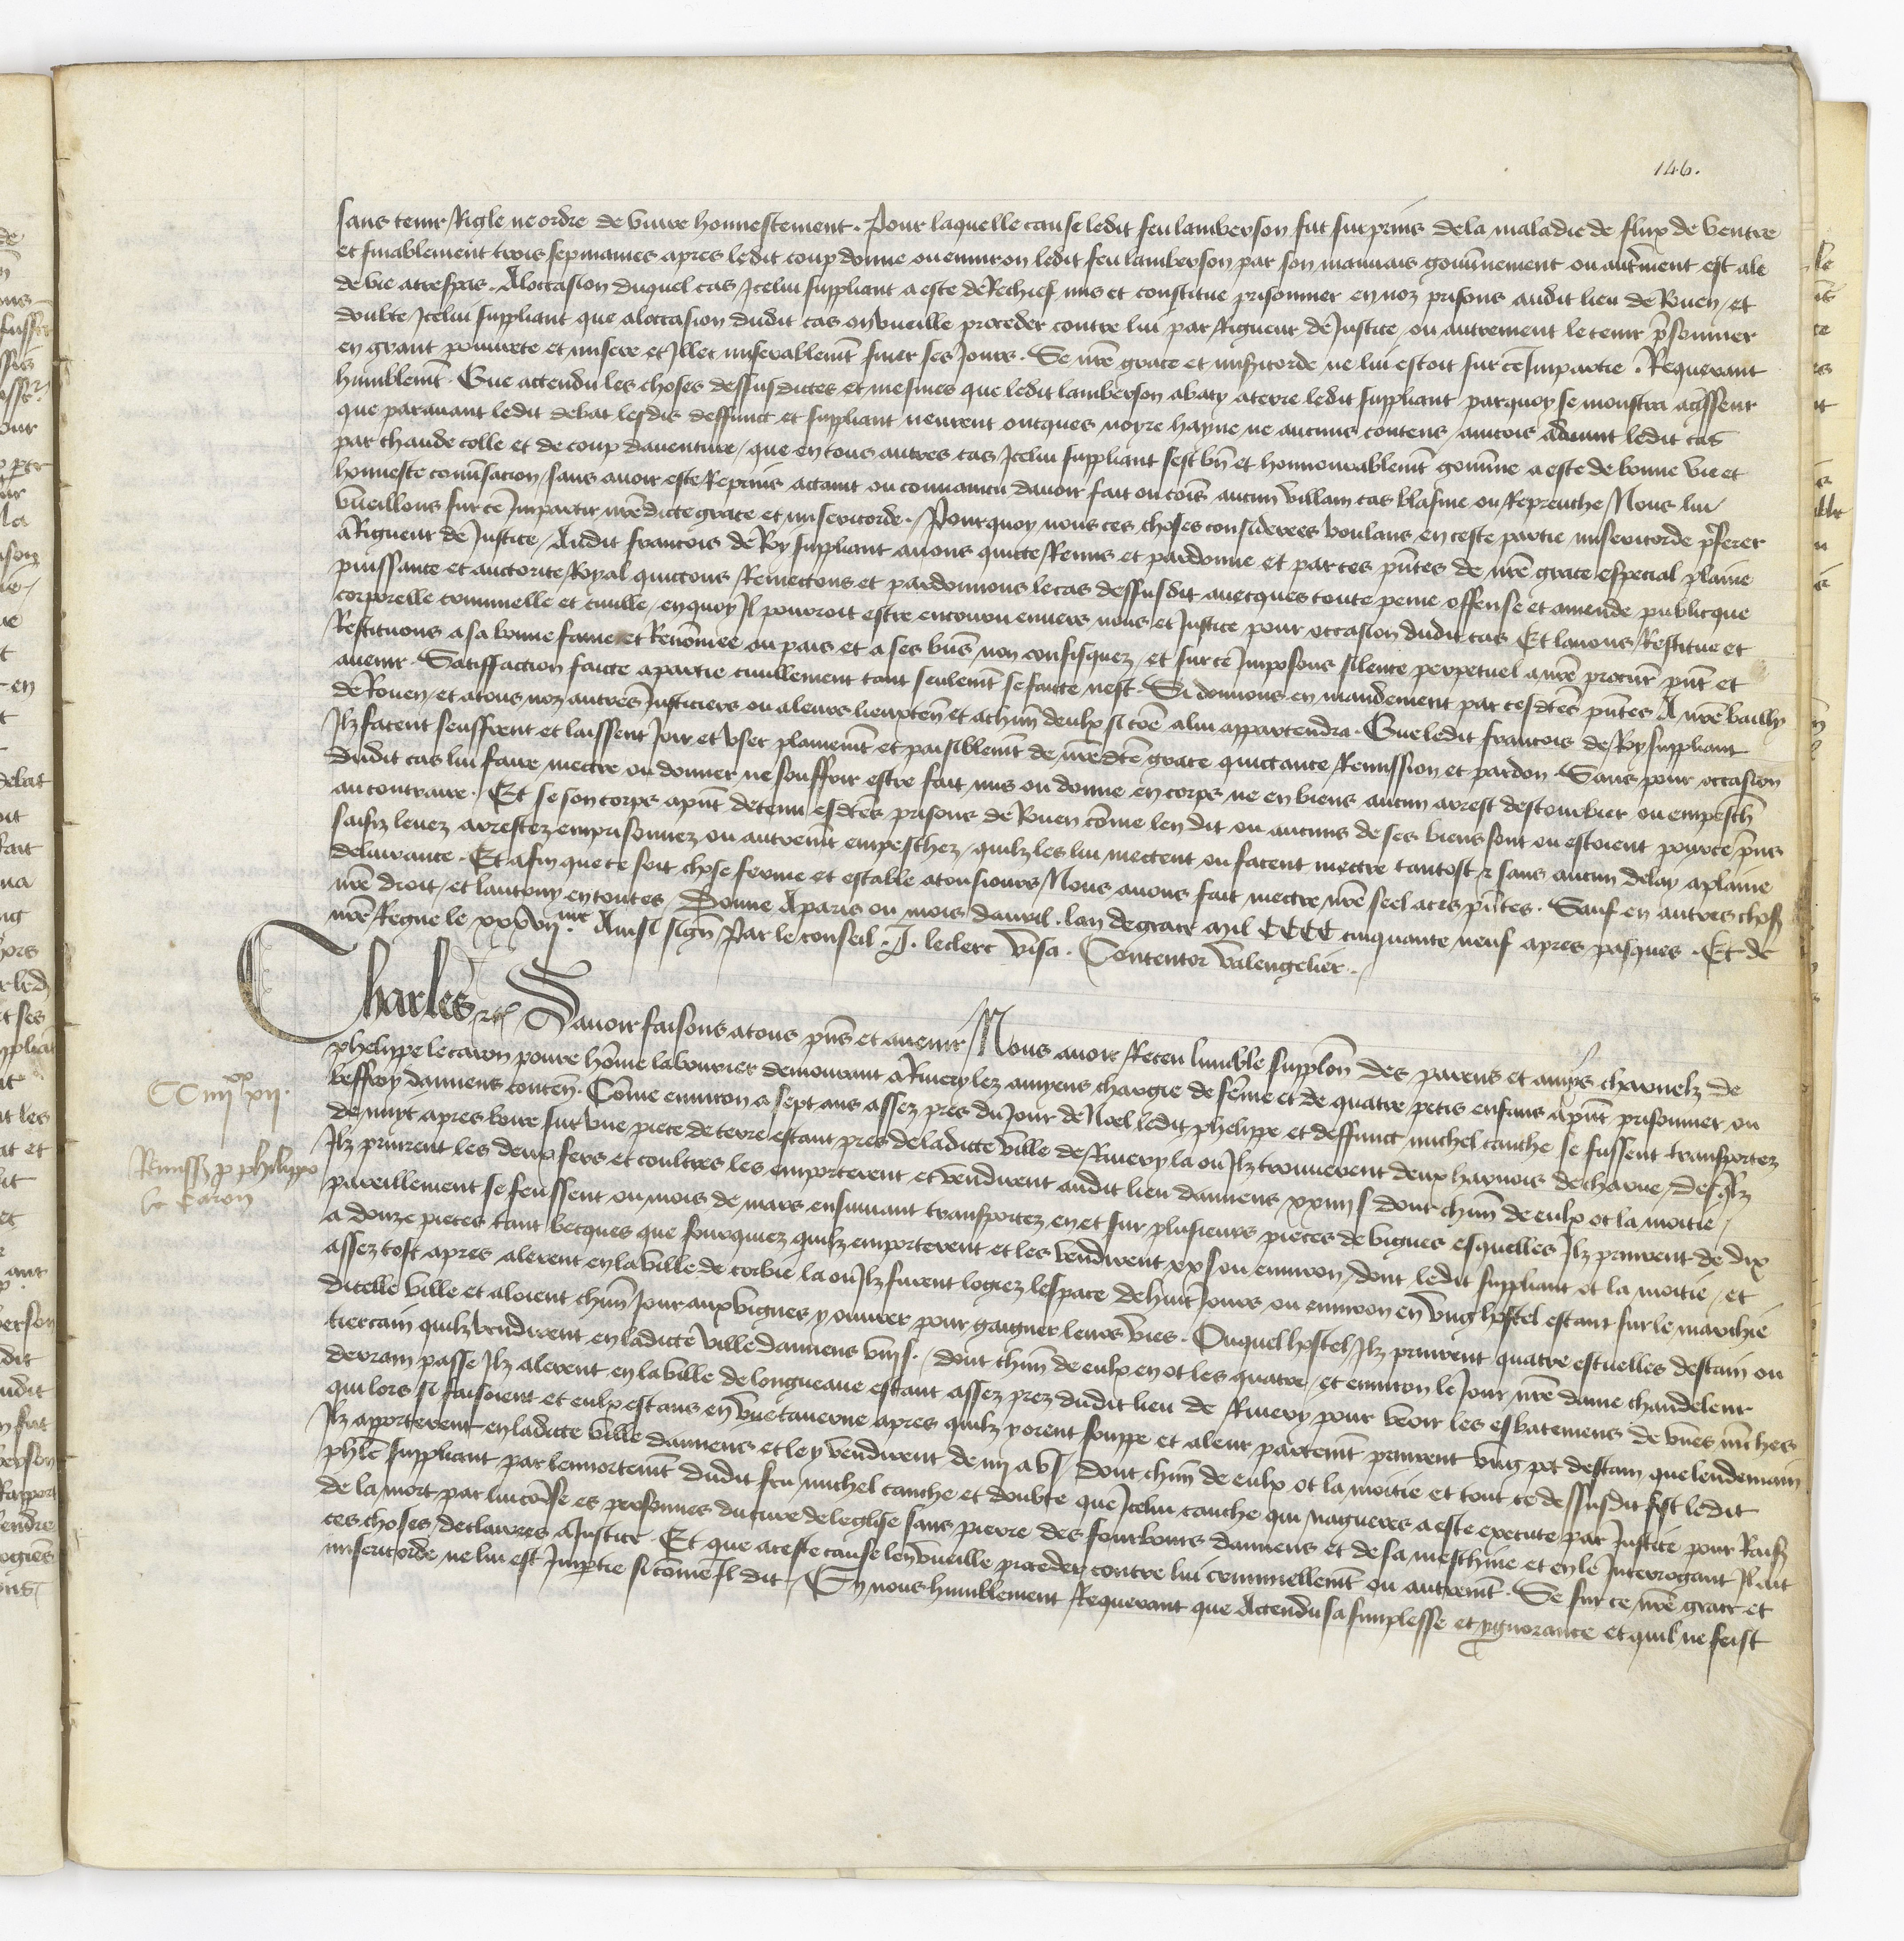 146.
sans tenir Rigle ne ordre de vivre honnestement. Pour laquelle cause ledit feu lamberson fut surprins de la maladie de flux de ventre
et finablement trois sepmaines apres ledit coup donne ou environ ledit feu lamberson par son mauvais gouvnement ou autrement est ale
de vie a trespas. A loccasion duquel cas Icelui suppliant a este de Rechief mis et constitue prisonnier en noz prisons audit lieu de Rouen / et
doubte Icelui suppliant que a loccasion dudit cas on vueille proceder contre lui par Rigueur de Justice / ou autrement le tenir psonnier
en grant povrete et misere et Illec miserablemt finer ses Jours. Se nre grace et misericorde ne lui estoit sur ce Impartie. Requerant
humblemt. Que attendu les choses dessusdictes et mesmes que ledit lamberson abaty a terre ledit suppliant parquoy se monstra agsseur
que paravant ledit debat lesdis deffunct et suppliant neurent oncques noyse hayne ne aucuns contens / aincois advint ledit cas
par chaude colle et de coup daventure / que en tous autres cas Icelui suppliant sest bn et honnourablemt gouvne a este de bonne vie et
honneste convsacion / sans avoir este Reprins actaint ou convaincu davoir fait ou comis aucun villain cas blasme ou Reprouche Nous lui
vueillons sur ce Impartir nre dicte grace et misericorde. Pourquoy nous ces choses considerees voulans en ceste partie misericorde pferer
a Rigueur de Justice / Audit francois de Roy suppliant avons quicte Remis et pardonne et par ces pntes de nre grace especial plaine
puissance et auctorite Royal quictons Remectons et pardonnons le cas dessusdit avecques toute peine offense et amende publicque
corporelle criminelle et civille / en quoy Il pourroit estre encouru envers nous et Justice pour occasion dudit cas Et lavons Restitue et
Restituons a sa bonne fame et Renommee au pais et a ses bns non confisquez / et sur ce Imposons silence perpetuel a nre procur pnt et
avenir. Satiffaction faicte a partie civillement tant seulemt se faicte nest. Si donnons en mandement par cesdtes pntes A nre bailly
de Rouen / et a tous noz autres Justiciers ou a leurs lieuxten et a chun deulx si come a lui appartendra. Que ledit francois de Roy suppliant
Ilz facent seuffrent et laissent Joir et user plainemt et paisiblemt de nre dte grace quictance Remission et pardon. Sans pour occasion
dudit cas lui faire mectre ou donner ne souffrir estre fait mis ou donne en corps ne en biens aucun arrest destourbier ou empesch
au contraire. Et se son corps a pnt detenu esdtes prisons de Rouen come len dit ou aucuns de ses biens sont ou estoient pour ce prins
saisiz levez arrestez emprisonnez ou autremt empeschez / quilz les lui mectent ou facent mectre tantost et sans aucun delay a plaine
delivrance. Et afin que ce soit chose ferme et estable a tousiours / Nous avons fait mectre nre seel a ces pntes. Sauf en autres choses
nre droit / et lautruy en toutes Donne A paris ou mois davril. lan de grace mil CCCC cinquante neuf apres pasques. Et de
nre Regne le xxxvii.me Ainsi signe Par le conseil. J. leclerc Visa. Contentor Valengelier.
Charles etc Savoir faisons a tous pns et avenir / Nous avoir Receu lumble supplon des parens et amys charnelz de
CC iiii xx xii.
phelippe le caron povre home labourier demourant a Rivery lez amyens chargie de feme et de quatre petis enfans a pnt prisonnier ou
beffroy damiens conten. Come environ a sept ans assez pres du Jour de Noel ledit phelippe et deffunct michel cauche se fussent transportez
de nuyt apres boire sur une piece de terre estant pres de ladicte ville de Rivery la ou Ilz trouverent deux harnois de charue / desqlz
Remiss p philippo
le Caron
Ilz prinrent les deux fers et coultres les emporterent et vendirent audit lieu damiens xxiiii s dont chun de eulx ot la moitie /
pareillement se feussent ou mois de mars ensuivant transportez en et sur plusieurs pieces de vignes esquelles Ilz prinrent de dix
a douze pieces tant becques que fourquiez quilz emporterent et les vendirent xx s ou environ / dont ledit suppliant ot la moitie / et
assez tost apres alerent en la ville de corbie la ou Ilz furent logiez lespace de huit Jours ou environ en ung hostel estant sur le marchie
dicelle ville et aloient chun Jour aux vignes y ouvrer pour gaigner leurs vies. Ouquel hostel Ilz prinrent quatre escuelles destain ou
tiercain quilz vendirent en ladicte ville damiens viii s. / dont chun de eulx en ot les quatre / et environ le Jour nre dame chandeleur
derrain passe Ilz alerent en la ville de longueaue estant assez prez dudit lieu de Rivery pour veoir les esbatemens de bnes
qui lors si faisoient et eulx estans en une taverne apres quilz y orent souppe et a leur partemt prinrent ung pot destain que lendemain
Ilz apporterent en ladicte ville damiens et le y vendirent de iiii a v s / dont chun de eulx ot la moitie et tout ce dessusdit fist ledit
phle suppliant par lennortemt dudit feu michel cauche et doubte que Icelui cauche qui nagueres a este execute par Justice pour Rais
de la mort par lui comise es personnes du cure de leglise sans pierre des fourbours damiens et de sa meschine et en le Interrogant Il ait
ces choses declairees a Justice. Et que a ceste cause len vueille proceder contre lui criminellemt ou autremt. Se sur ce nre grace et
misericorde ne lui est Imptie si come Il dit / En nous humblement Requerant que Attendu sa simplesse et ygnorance et quil ne feist